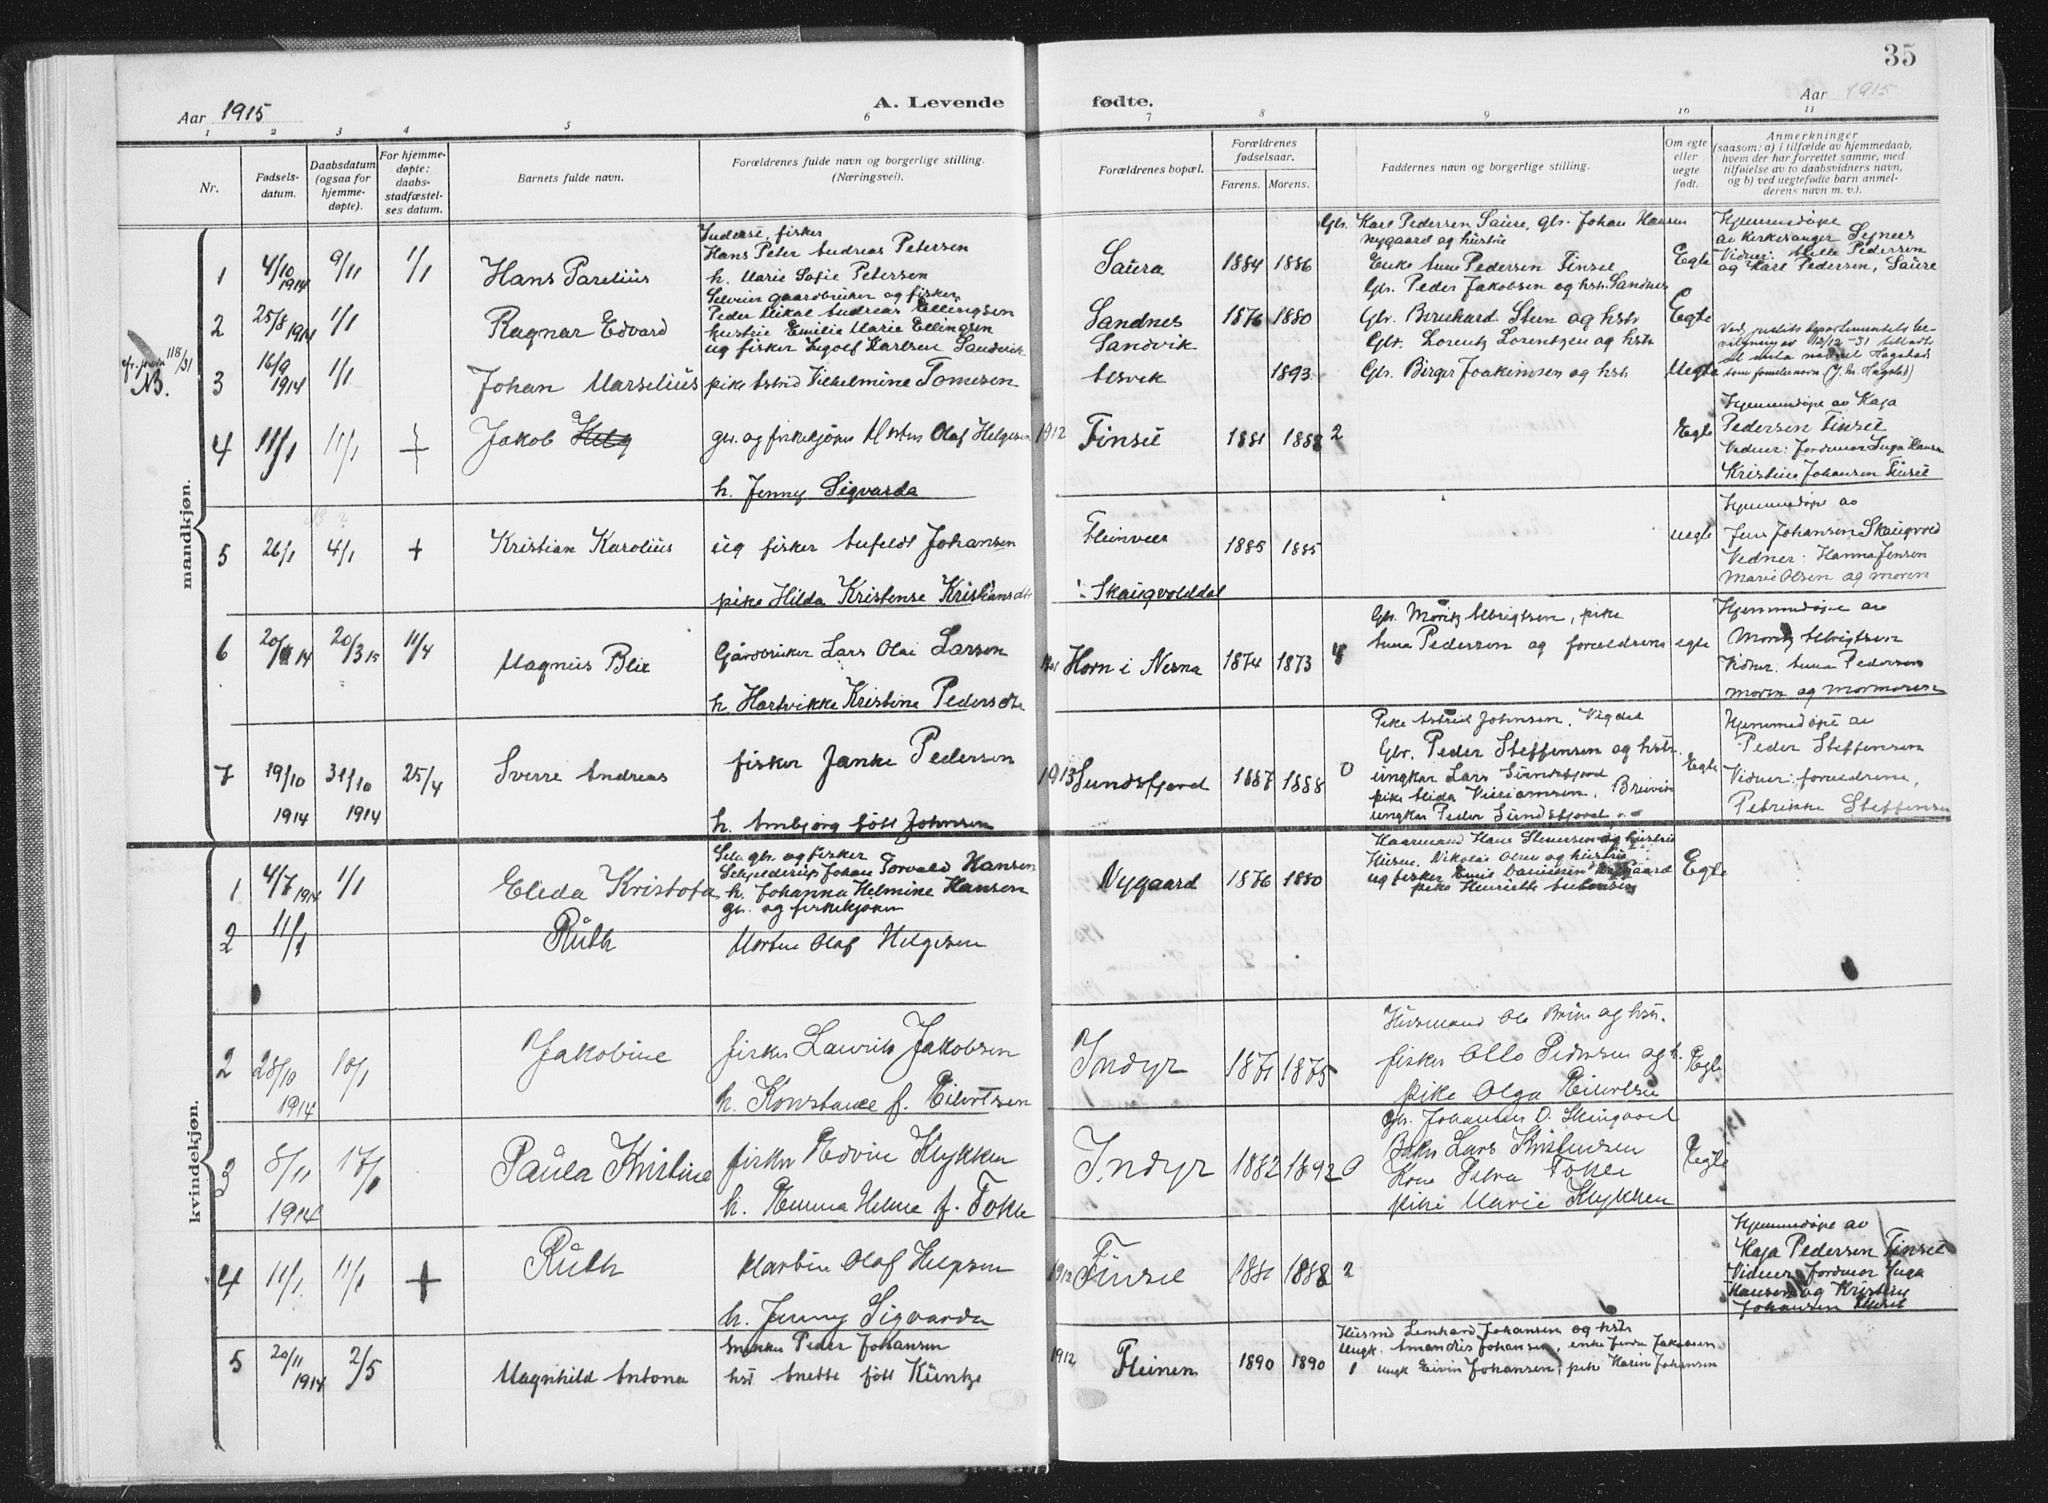 35
Aar 1915
A. Levende
fødte.
Aar 1915
1 2 3 4 5 6 7 8 9 10 11
Nr.
Fødsels-
datum.
Daabsdatum
(ogsaa for
hjemme-
døpte).
For hjemme-
døpte:
daabs-
stadfæstel-
ses datum.
Barnets fulde navn.
Forældrenes fulde navn og borgerlige stilling.
(Næringsvei).
Forældrenes bopæl.
Forældrenes
fødselsaar.
Farens. Morens.
Faddernes navn og borgerlige stilling.
Om egte
eller
uegte
født.
Anmerkninger
(saasom: a) i tilfælde av hjemmedaab,
hvem der har forrettet samme, med
tilføielse av to daabsvidners navn,
og b) ved uegtefødte barn anmel-
derens navn m. v.).
mandkjøn.
1 4/10 1914 9/11 1/1 Hans Parelius
fisker
Hans Peter Andreas Petersen
h. Marie Sofie Petersen
Saura 1884 1886
Gbr. Karl Pedersen Saure, gbr. Johan Hansen
Nygaard og hustru
Enke Anna Pedersen Finset
Gbr. Peder Jakobsen og hstr. Sandnes
Egte
Hjemmedøpt
av kirkesanger Segnes
Vidner: Mette Pedersen
og Karl Pedersen, Saure
2 25/8 1914 1/1 Ragnar Edvard
Selveier gaardbruker og fisker
Peder Mikal Andreas Ellingsen
hustru Emilie Marie Ellingsen
Sandnes 1876 1880
Gbr. Bernhard Steen og hstr
Egte
118/31
NB.
3 16/9 1914 1/1 Johan Marselius
ug fisker Ingolf Karlsen Sandvik
pike Astrid Vilhelmine Tomesen
Sandvik
Aesvik 1893
Gbr. Lorentz Lorentzen og hstr
Gbr. Birger Joakimsen og hstr
Uegte
Ved justits departementets be-
vilgning av 12/12-31 tilladt
at anta navnet Hagstad
som familienavn (J. M. Hagstad)
4 11/1 11/1 + Jakob Helg
gbr. og fiskekjøper Morten Olaf Helgesen
h. Jenny Sigvarda
1912 Finset 1881 1888 2
Egte
Hjemmedøpt av Kaja
Pedersen Finset
Vidner: Jordmor Inga Hansen
Kristine Johansen Finset
5 26/1 4/1 + Kristian Karolius
ug fisker Anfeldt Johansen
pike Hilda Kristense Kristiansdtr
Fleinvær
: Skaugvolddal
1885 1885
uegte
Hjemmedøpt av
Jens Johansen Skaugvold
Vidner: Hanna Jensen
Marie Olsen og moren
6 20/ 14 20/3 15 11/4 Magnus Blix
Gårdbruker Lars Olai Larsen
h. Hartvikke Kristine Pedersdtr
Horn i Nesna 1874 1873 4
Gbr. Moritz Albrigtsen, pike
Anna Pedersen og forældrene
egte
Hjemmedøpt av
Moritz Albrigtsen
Vidner: Anna Pedersen
moren og mormoren
7 19/10 1914 31/10 1914 25/4 Sverre Andreas
fisker Janke Pedersen
h. Annbjørg født Johnsen
1913 Sundsfjord 1887 1888 0
Pike Astrid Johnsen, Vigdel
Gbr. Peder Steffensen og hstr.
ungkar Lars Sundsfjord
pike Alida Mariamsen, Breivik
ungkar Peder Sundsfjord
Egte
Hjemmedøpt av
Peder Steffensen
Vidner: forældrene,
Petrikke Steffensen
kvindekjøn.
1 4/7 1914 1/1 Eleda Kristofa
Selv. gbr. og fisker
Schjelderup Johan Torvald Hansen
h. Johanna Helmine Hansen
Nygaard 1876 1880
Haarmand Hans Steensen og hustru
Husm. Nikolai Olsen og hustru
ug fisker Emil Danielsen Nygaard
pike Henriette Antonsen
Egte
2 11/1 Ruth
gbr. og fiskekjøper
Morten Olaf Helgesen
2 28/10 1914 10/1 Jakobine
fisker Laurits Jakobsen
h. Konstance f. Eilertsen
Indyr 1871 1875
Husmand Ole Brun og hstr.
fisker Otto Pedersen og h.
pike Olga Eilertsen
Egte
3 8/11 1914 17/1 Paula Kristine
fisker Edvin Klykken
h. Emma Helene f. Tokle
Indyr 1882 1892 0
Gbr. Johannes D. Steingaard
Baker Lars Kristensen
Kone Petra Tokle
pike Marie Klykken
Egte
4 11/1 11/1 + Ruth
Martin Olaf Helgesen
h. Jenny Sigvarda
1912 Finset 1881 1888 2
Hjemmedøpt av
Kaja Pedersen Finset
Vidner Jordmor Inga
Hansen og Kristine
Johansen Finset
5 20/11 1914 2/5 Magnhild Antona
Peder Johansen
hst. Anette født Küntze
1912 Fleinen 1890 1890 1
Husmd Leonhard Johansen og hstr
ungk. Amandus Johansen, enke Jakobsen
ungk Eivin Johansen, pike Karen Johansen